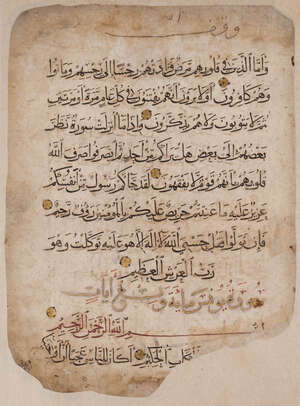 وقف لله
وأما الذين في قلوبهم مرض فزادتهم رجسا إلى رجسهم وماتوا
وهم كافرون أولا يرون أنهم يفتنون في كل عام مرة أو مرتين
ثم لا يتوبون ولا هم يذكرون وإذا ما أنزلت سورة نظر
بعضهم إلى بعض هل يراكم من أحد ثم انصرفوا صرف الله
قلوبهم بأنهم قوم لا يفقهون لقد جاءكم رسول من أنفسكم
عزيز عليه ما عنتم حريص عليكم بالمؤمنين رؤف رحيم
فإن تولوا فقل حسبي الله لا إله إلا هو عليه توكلت وهو
رب العرش العظيم
سورة يونس مائة وتسع آيات
بسم الله الرحمن الرحيم
الكتاب الحكيم أكان للناس عجبا أن